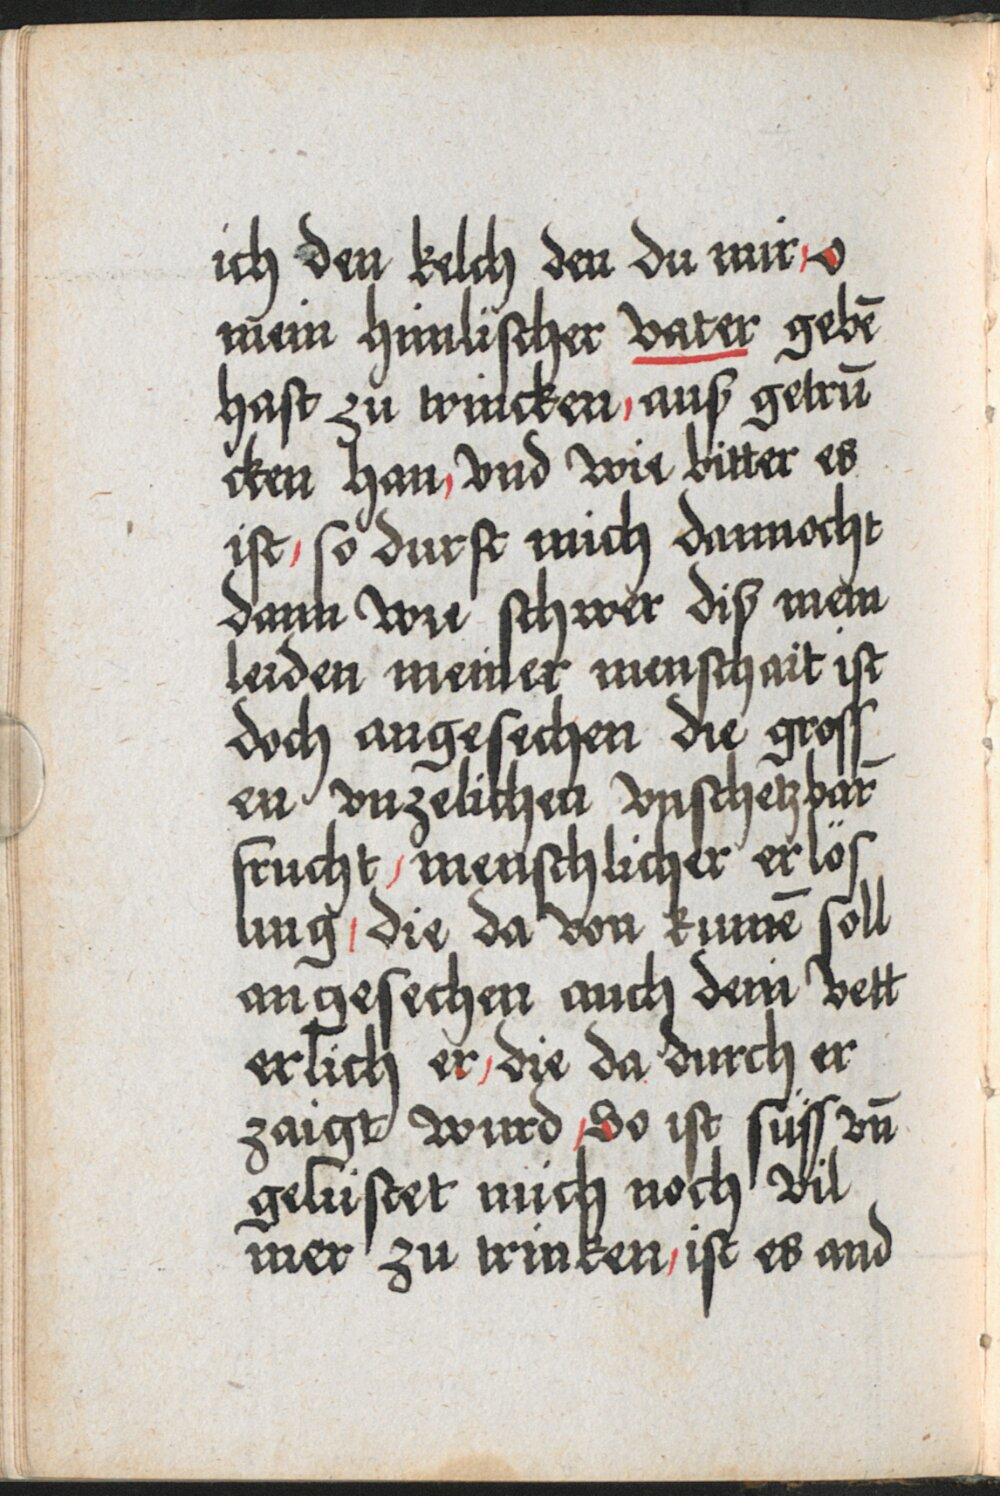 ich den kelch den du mir, o
mein himlischer vater gebē
hast zu trincken, auß getrū
cken han, vnd wie bitter es
ist, so durst mich dannocht
dann wie schwer diß mein
leiden meiner menschait ist
doch angesechen die gross
en vnzelichen vnschetzbar̄
frucht, menschlicher erlös
ung, die da von kumē soll
angesechen auch dein vett
erlich er, die da durch er
zaigt wurd, So ist süss vn̄
gelüstet mich noch vil
mer zu trinken, ist es and